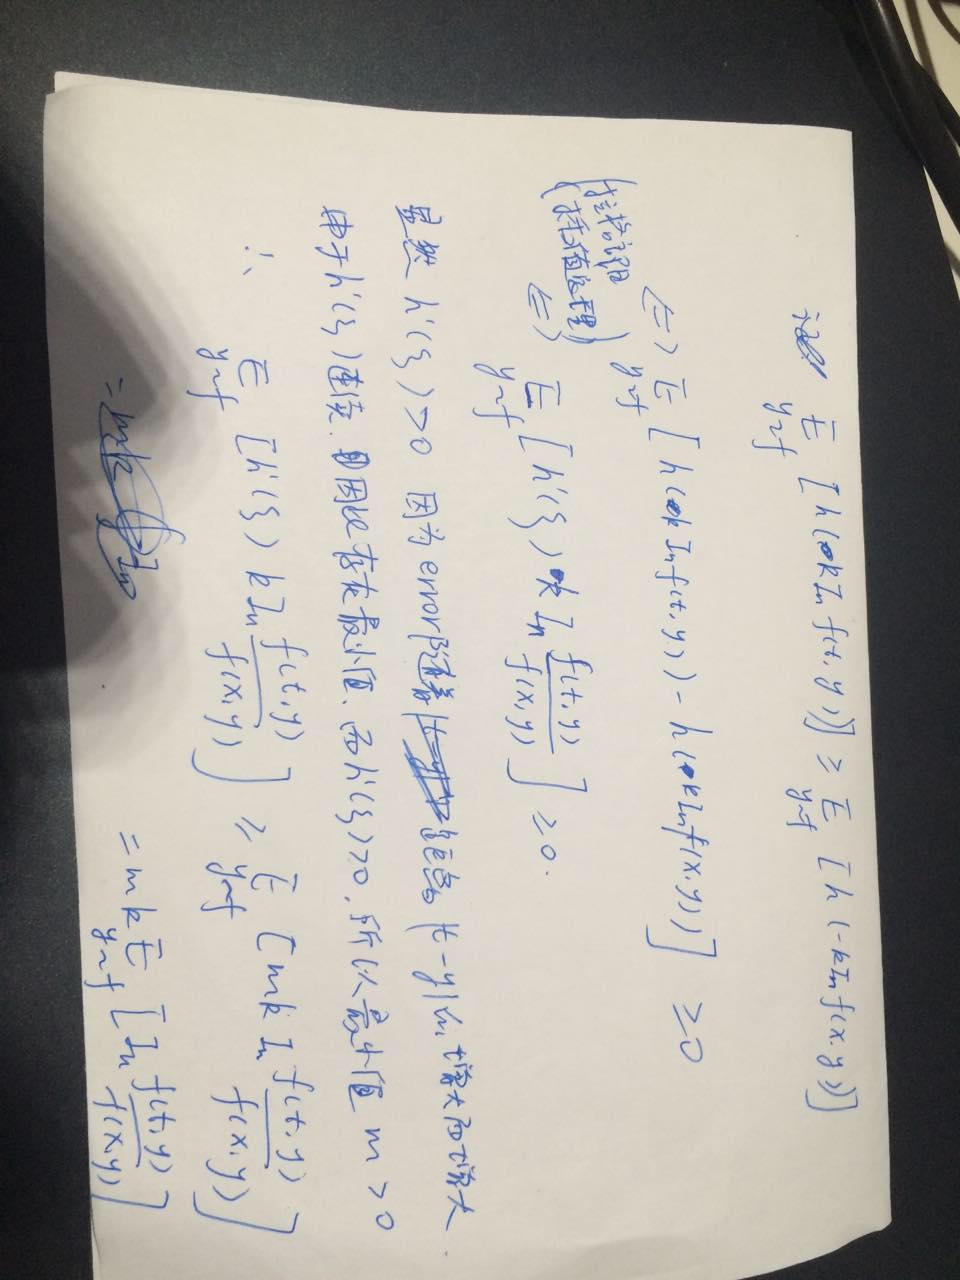 证 E_{y~f} [h(k ln f(t,y))] ≥ E_{y~f} [h(-k ln f(x,y))]
⇔ E_{y~f} [h(k ln f(t,y)) - h(k ln f(x,y))] ≥ 0
(拉格朗日
中值定理)
⇔ E_{y~f} [h'(ξ) k ln \frac{f(t,y)}{f(x,y)}] ≥ 0.
显然 h'(ξ) > 0 因为error随着 距离 |t-y| 的增大而增大.
由于h'(ξ)连续. 因此存在最小值. 而h'(ξ)>0. 所以最小值 m > 0
∴ E_{y~f} [h'(ξ) k ln \frac{f(t,y)}{f(x,y)}] ≥ E_{y~f} [mk ln \frac{f(t,y)}{f(x,y)}]
= mk E_{y~f} [ln \frac{f(t,y)}{f(x,y)}]